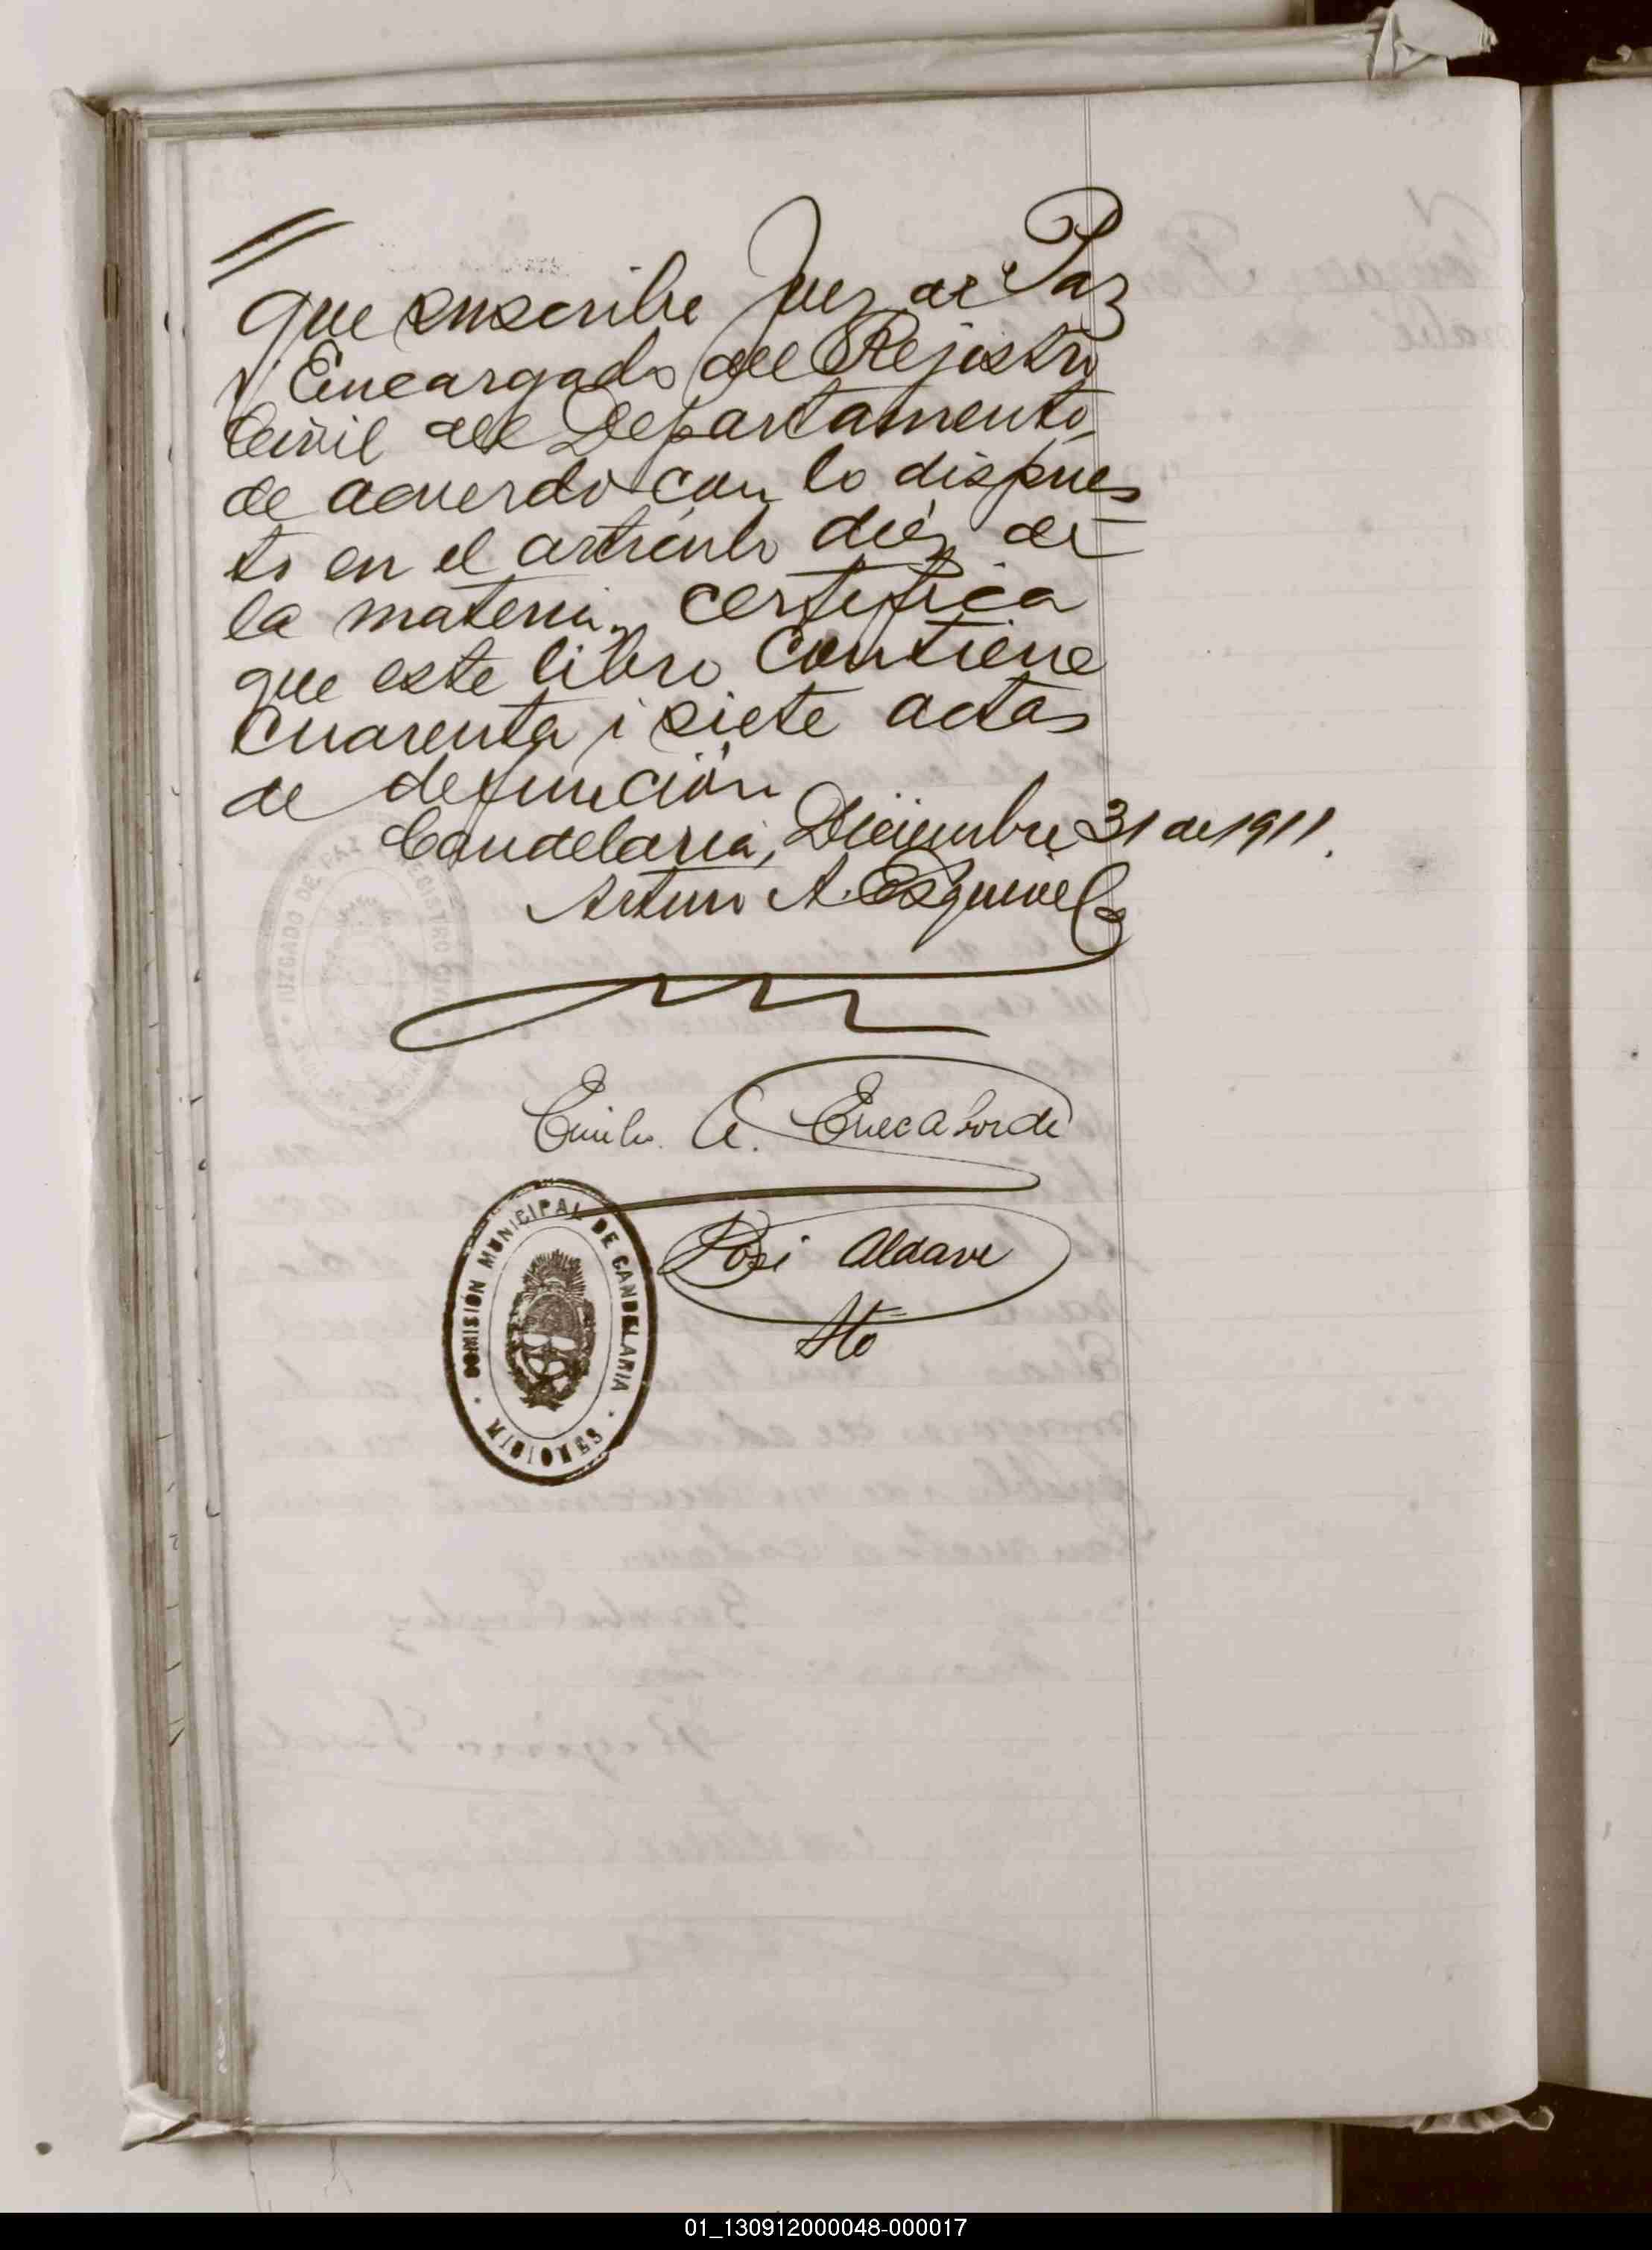 que suscribe Juez de Paz
y Encargado del Rejistro
Civil del Departamento,
de acuerdo con lo dispues
to en el artículo diez de
la materia, certifica
que este libro contiene
cuarenta i siete actas
de defunción
Candelaria, Diciembre 31 de 1911.
Arturo A. Esquivel
Emilio A.
José Aldave
Sto
COMISION MUNICIPAL DE CANDELARIA
MISIONES
JUZGADO DE PAZ
REGISTRO
01_130912000048-000017